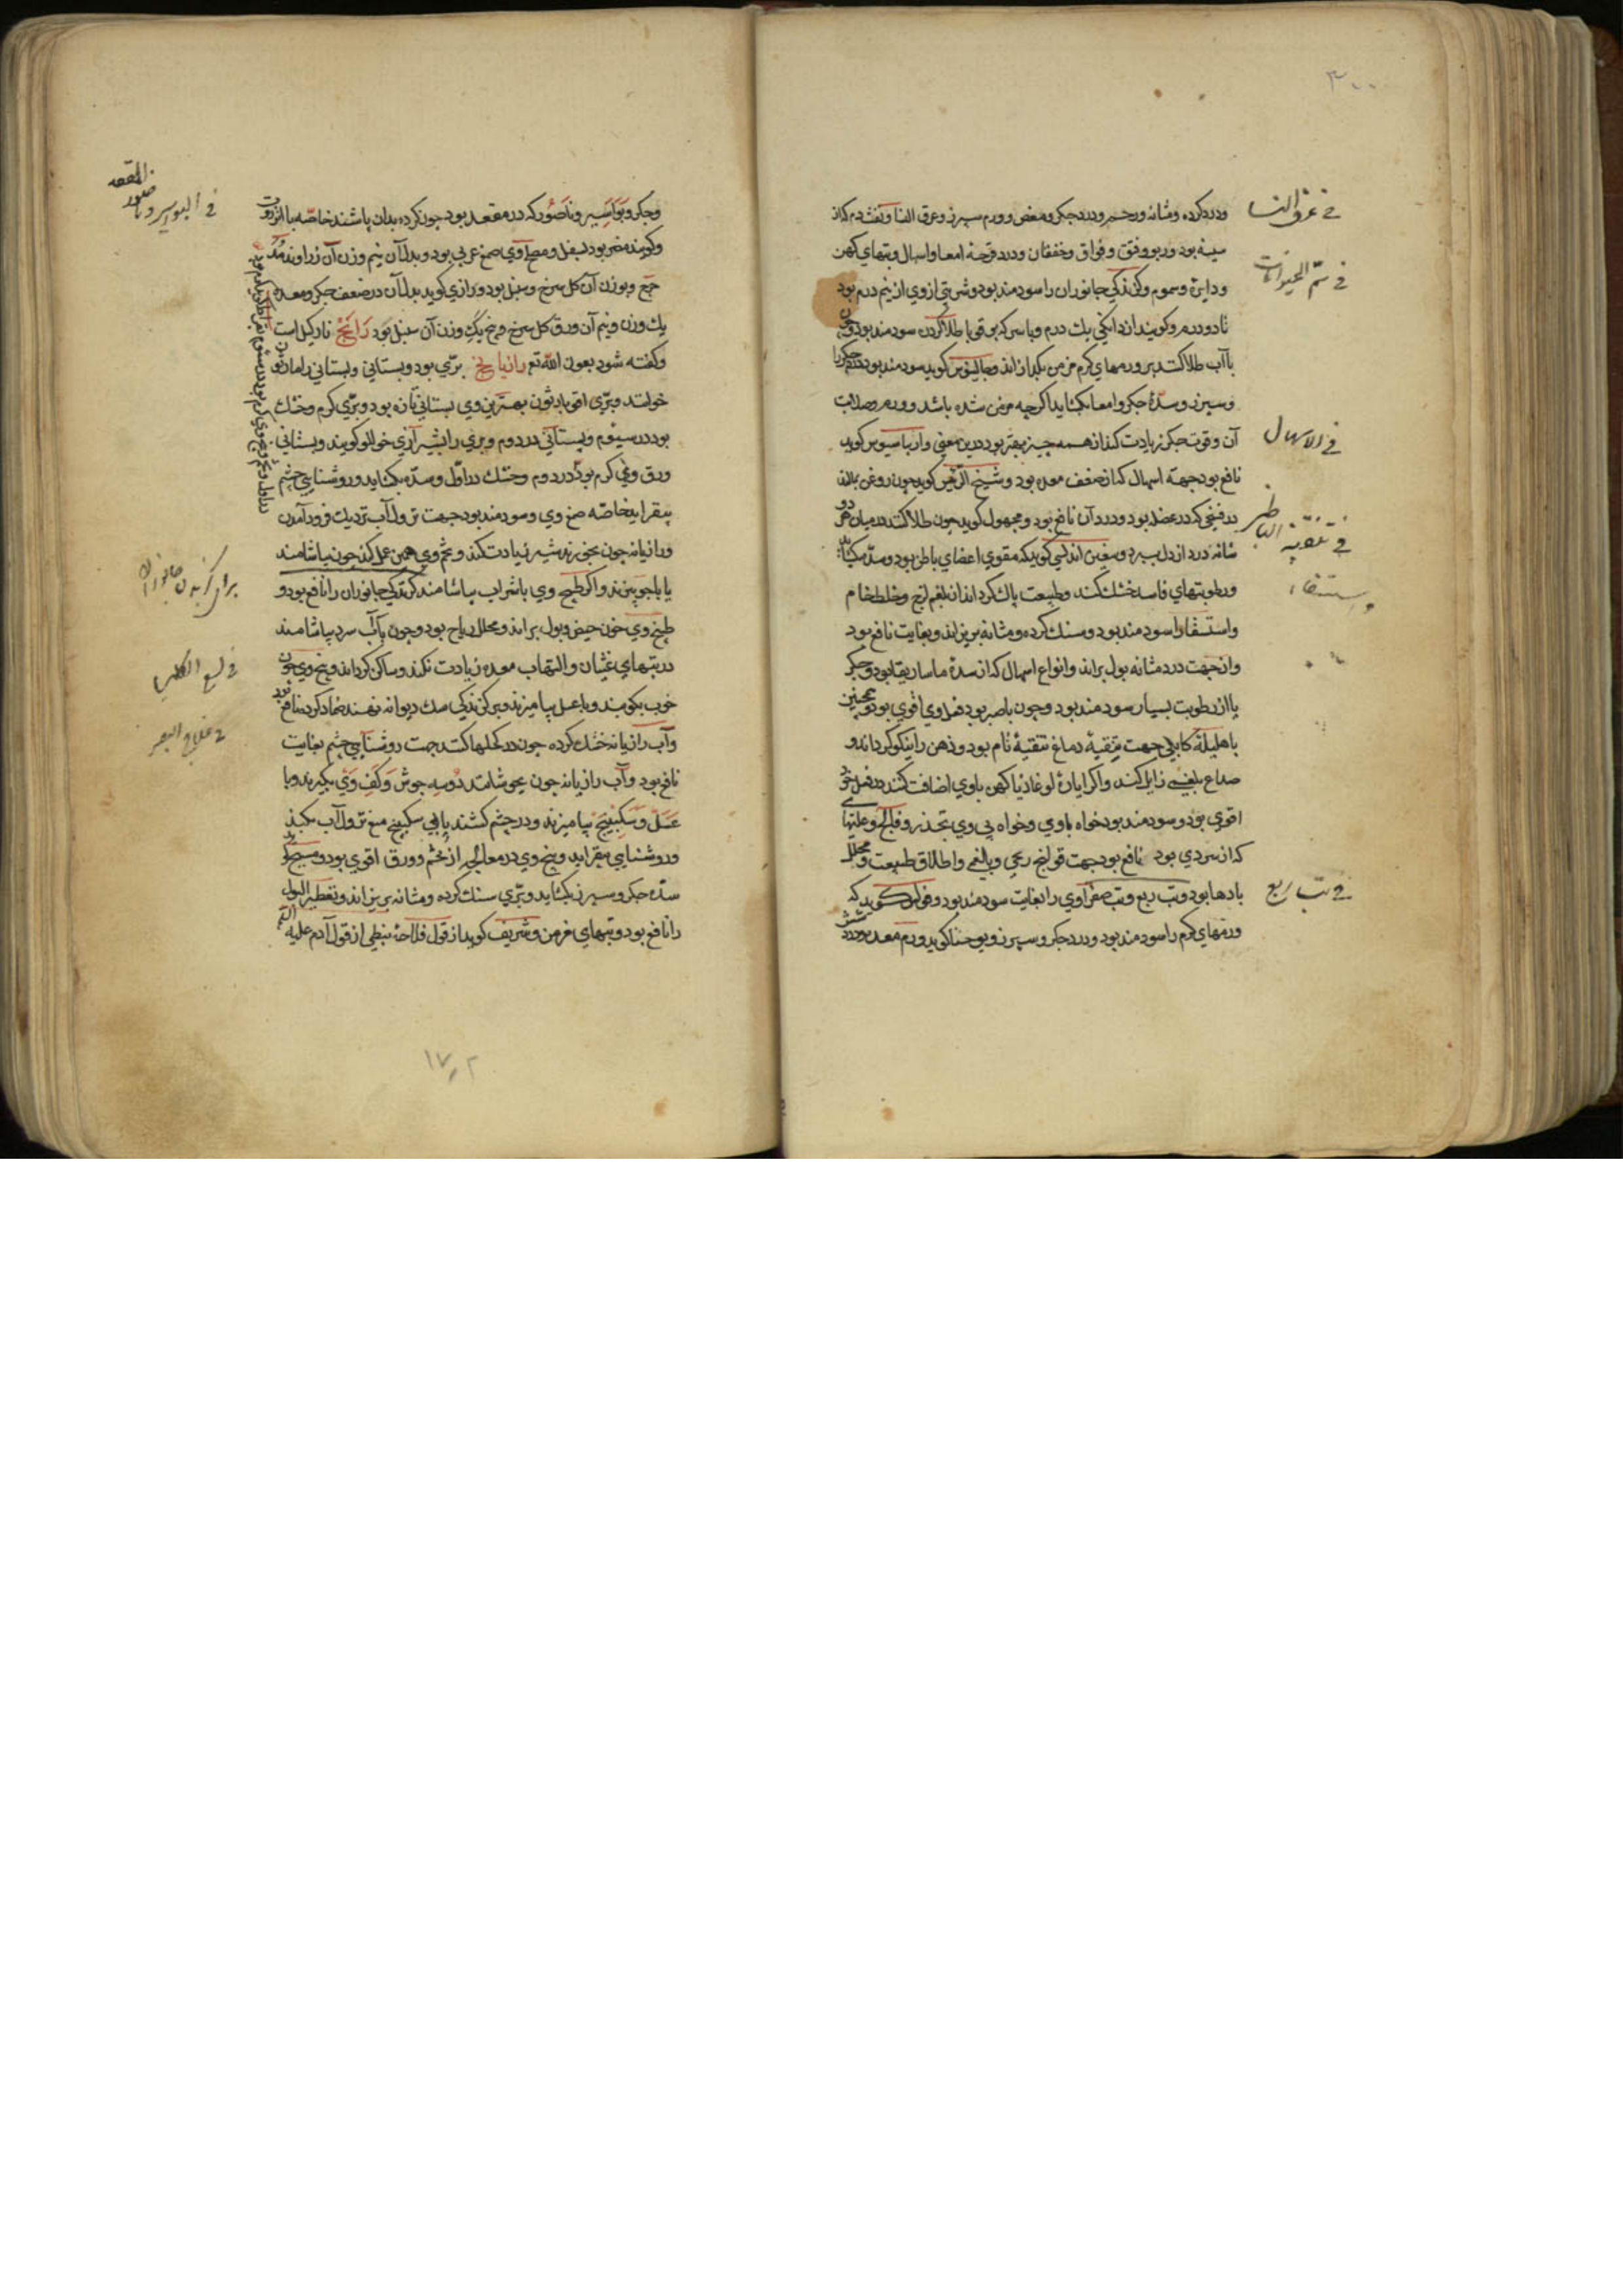 ۳۰۰
في عرق النسا
ودرد کرده ومثانه ورحم ودرد جکر ومغص وورم سپرز وعرق النسا ونفث دم کاز
سینه بود وربو وفتق وفواق وخفقان ودرد قرحهٔ امعا واسهال وتبهای کهن
في سم الحیوانات
وسموم وکزندکی جانوران را سودمند بود وشربتی از وی از نیم درم بود
تا دو درم وکویند از دانکی تا یک درم وبا سرکه بر قوبا طلا کردن سودمند بود وچون
با آب طلا کنند بر ورمهای کرم مزمن بکدازاند وجالینوس کوید سودمند بود جکر را
وسپرز وسدهٔ جکر وامعا بکشاید اکرچه مزمن شده باشد وورم وصلابت
في الاسهال
آن وقوت جکر زیادت کند از همه چیز بهتر بود درین معنی واریاسیوس کوید
نافع بود جهة اسهال که از ضعف معده بود وشیخ الرئیس کوید چون روغن بمالند
در فسخی که در عضل بود ودرد آن نافع بود ومجهول کوید چون طلا کنند در میان هر دو
في تنقیة الباطن
شانه درد از دل ببرد وسفین اندلسی کوید که مقوی اعضای باطن بود وسده بکشاید
واستسقاء
ورطوبتهای فاسد خشک کند وطبیعت پاک کرداند از بلغم لزج وخلط خام
واستسقا را سودمند بود وسنک کرده ومثانه بریزاند وبغایت نافع بود
وازجهت درد مثانه بول براند وانواع اسهال که از سدهٔ ماساریقا بود وجکر
یا از رطوبت بسیار سودمند بود وچون با صبر بود فعل وی اقوی بود وهمچنین
با هلیلهٔ کابلی جهت تنقیهٔ دماغ تنقیهٔ تام بود وذهن را نیکو کرداند و
صداع بلغمی زایل کند واکر ایارهٔ لوغاذیا کهن با وی اضافت کنند در فعل خود
اقوی بود وسودمند بود خواه با وی وخواه بی وی تخدر وفالج وعلتهای
که از سردی بود نافع بود جهت قولنج ریحی وبلغمی واطلاق طبیعت ومحلل
في تب ربع
بادها بود وتب ربع وتب صفراوی را بغایت سودمند بود وفولس کوید که
ورمهای کرم را سودمند بود ودرد جکر وسپرز ویوحنا کوید ورم معده ودرد شش
في البواسیر وناصور المقعد
وجکر وبواسیر وناصور که در مقعد بود چون کرده بدان پاشند خاصه با انزروت
وکویند مضر بود بسفل ومصلح وی صمغ عربی بود وبدل آن نیم وزن آن زراوند مدحرج
وبوزن آن کل سرخ وسنبل بود ورازی کوید بدل آن در ضعف جکر ومعده
یک وزن ونیم آن ورق کل سرخ وپنج یک وزن آن سنبل بود رانج نارکیل است
وکفته شود بعون الله تع رازیانج برّی بود وبستانی وبستانی را
خوانند وبرّی بهترین وی بستانی تازه بود وبرّی کرم وخشک
بود در سیوم وبستانی در دوم وبری را بشیرازی کویند وبستانی
ورق وی کرم بود در دوم وخشک در اول وسده بکشاید وروشنایی چشم
بیفزاید خاصه صمغ وی وسودمند بود جهت نزول آب نزدیک فرود آمدن
ورازیانه چون شیر زیادت کند وتخم وی همین عمل کند چون بیاشامند
برای کزیدن جانوران
یا با جو بپزند واکر طبیخ وی با شراب بیاشامند کزندکی جانوران را نافع بود و
طبیخ وی خون حیض وبول براند ومحلل ریاح بود وچون بآب سرد بیاشامند
في لسع الکلب
در تبهای غثیان والتهاب معده زیادت نکند وساکن کرداند وبیخ وی چون
خوب بکوبند وبا عسل بیامیزند وبر کزندکی سک دیوانه نهند ضماد کردن نافع بود
في علاج البصر
وآب رازیانه خشک کرده چون در کحلها کنند جهت روشنایی چشم بغایت
نافع بود وآب رازیانه چون بجوشانند دو سه جوش وکف وی بکیرند وبا
عسل وسکبینج بیامیزند ودر چشم کشند منع نزول آب بکند
وروشنایی بیفزاید وبیخ وی در معالجه از تخم وورق اقوی بود ومسیح کوید
سدهٔ جکر وسپرز بکشاید وبرّی سنک کرده ومثانه بریزاند وتقطیر البول
را نافع بود وتبهای مزمن وشریف کوید از قول فلاحهٔ نبطی از قول آدم علیه السلم